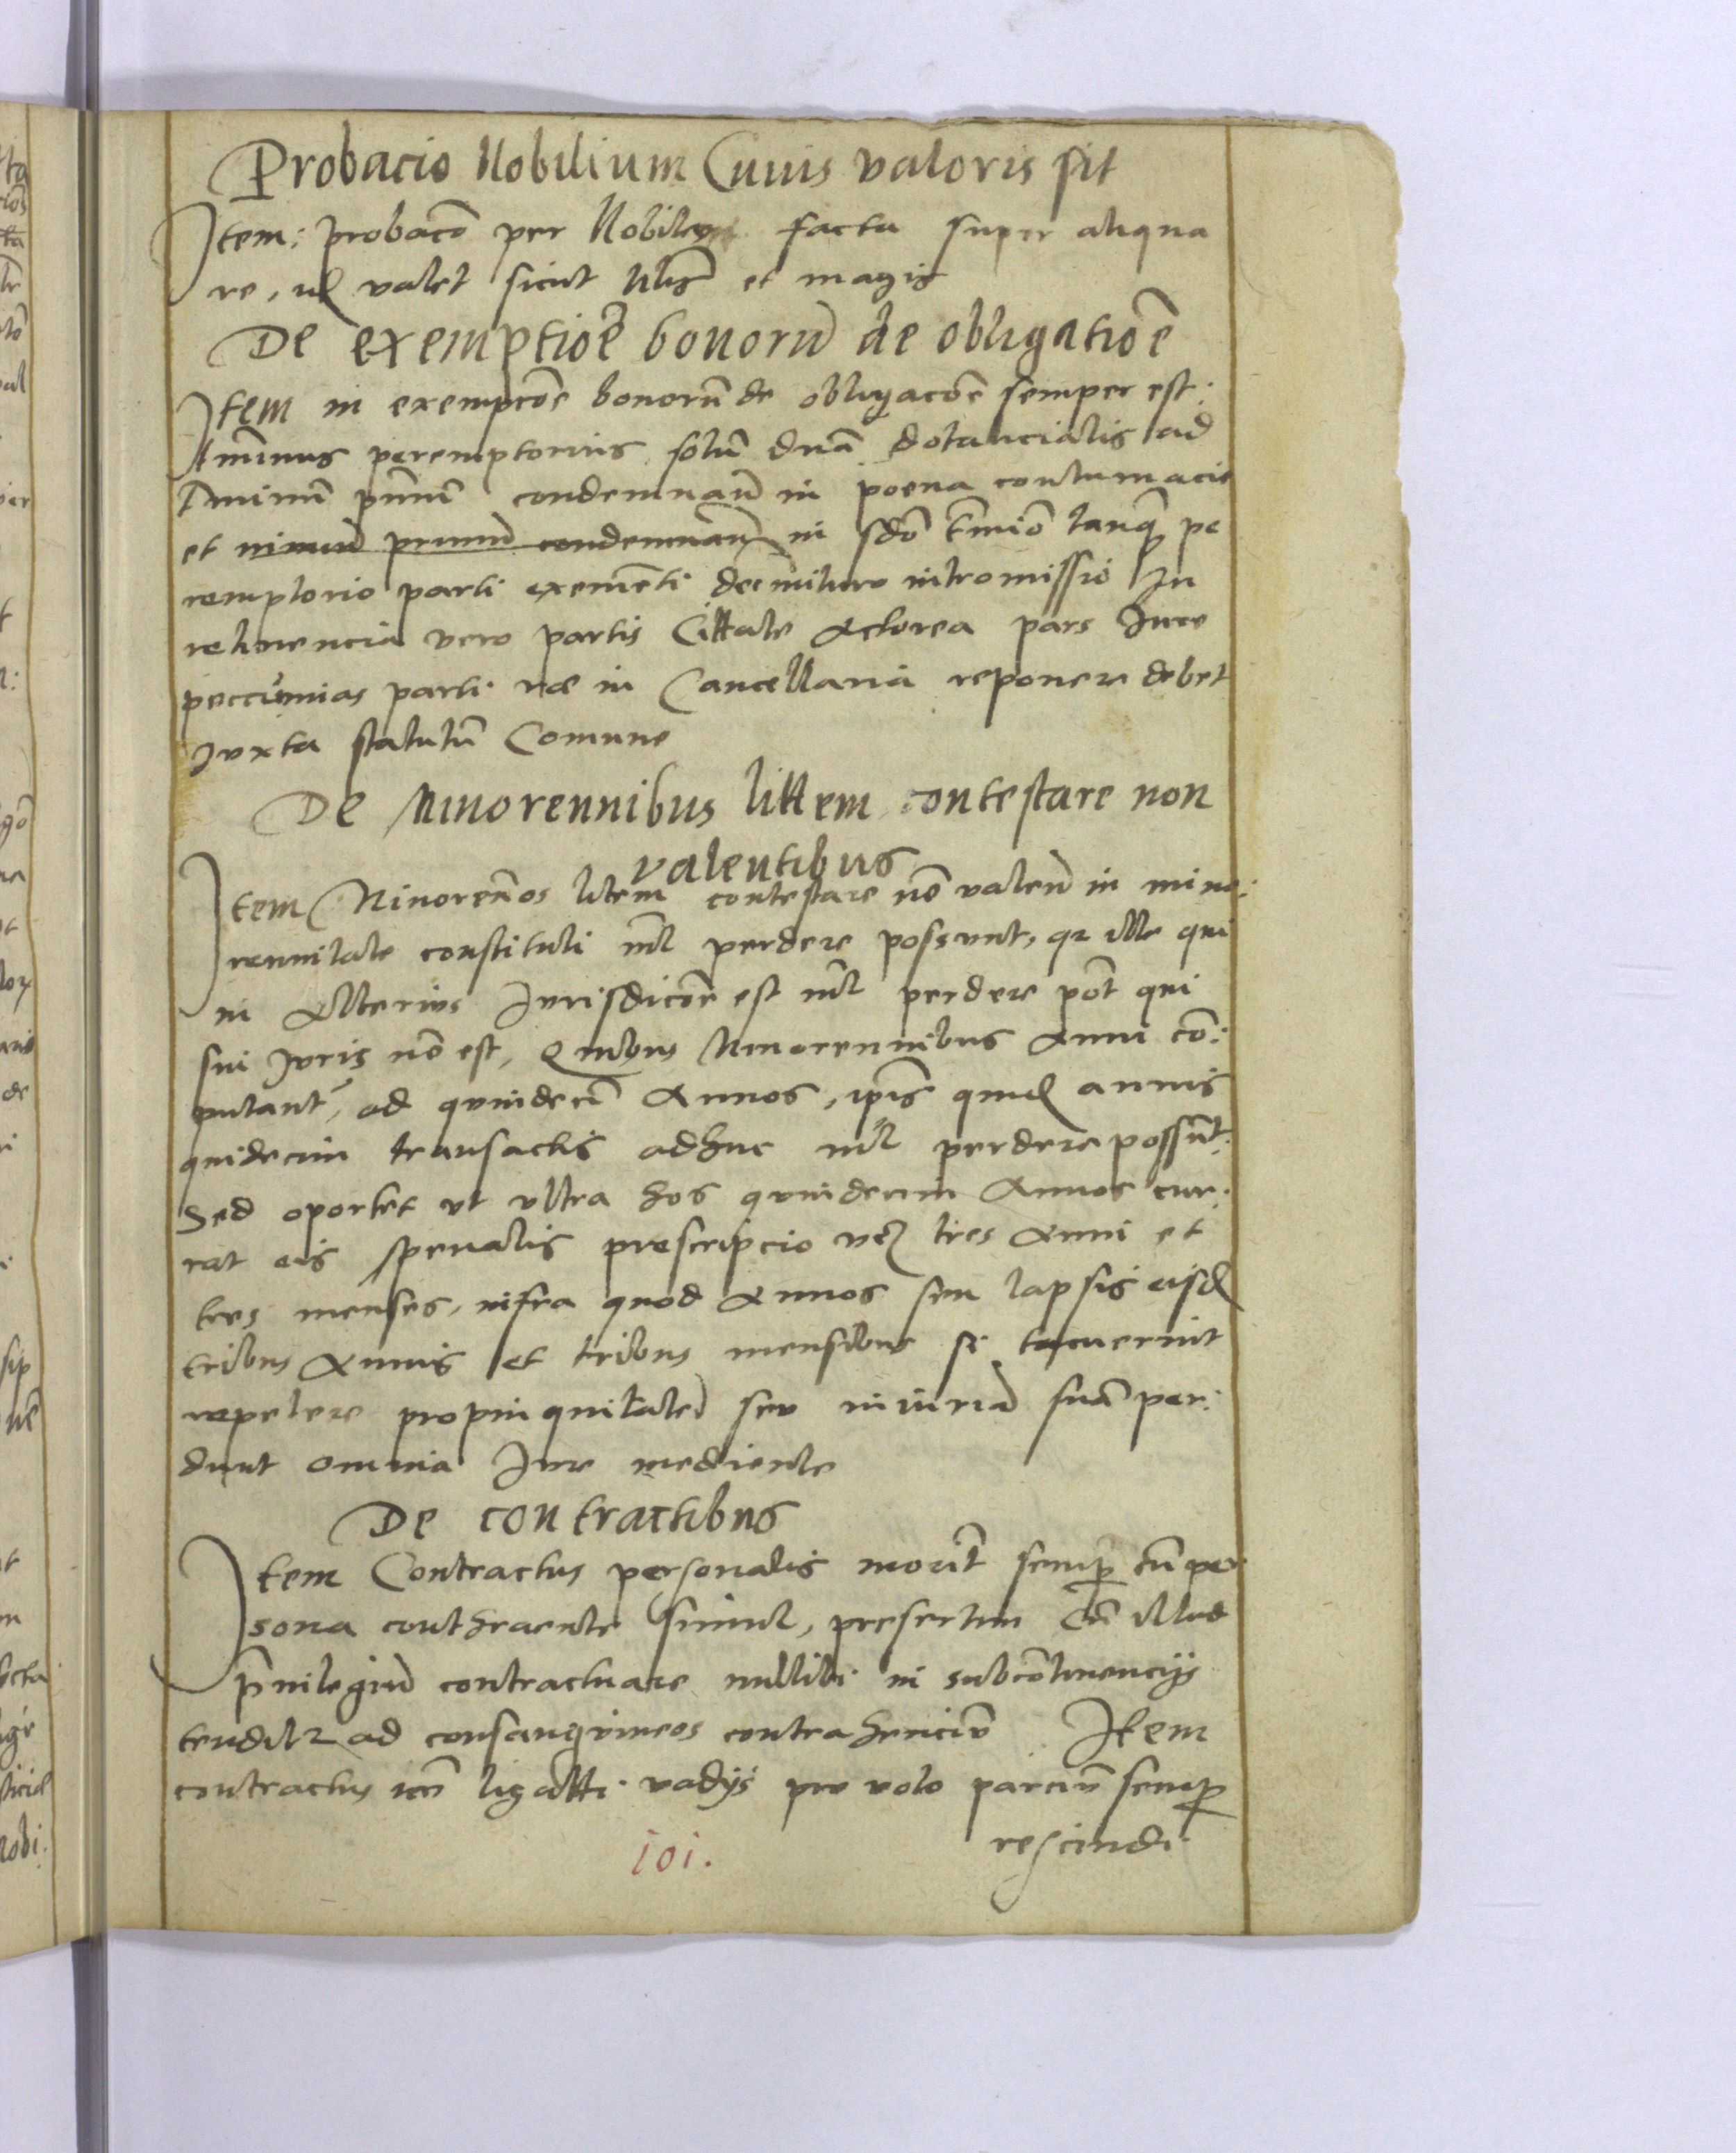 Probacio Nobilium Cuius valoris sit
Item: probacō per Nobiles facta super aliqua
re, valet sicut et magis
De exemptiōe bonorū de obligatiōe
Item in exempcōe bonorū de obligacōe semper est
tminus peremptorius solū dnā dotancialis ad
tminū pmū condemnatur in poena contumacie
et nimirū primū condemnatur in scdo tmino tanq̄ pe
remptorio parti eximēti decernitur intromissio In
retinencia vero partis Cittate Actorea pars Iure
peccunias parti in Cancellaria reponere debet
Iuxta statutū Comune
De Minorennibus littem contestare non
valentibus
Item Minorēnos litem contestare nō valen in mino:
rennitate constituti nil perdere possunt, qr ille qui
in Alterius Iurisdicōe est nil perdere pōt qui
sui Iuris nō est, Quibus Minorennibus Anni cō:
putant, ad quindeci Annos, ipis quid annis
quindecim transactis adhuc nil perdere possūt:
Sed oportet ut ultra hos quindecim Annos cur:
rat eis specialis prescripcio vz tres Anni et
tres menses, infra quod Annos seu lapsis eisd
tribus Annis et tribus mensibus si tacuerint
repetere propinquitatē seu iniuriā suā per:
dunt omnia Iure mediante
De contractibus
Item Contractus personalis morit semp̄ cū per
sona conthraente simul, presertim Cū illud
privilegiū contractuare nullibi in subcōtinencijs
tenditr ad consanguineos contrahenciū Item
contractus ligatti vadijs pro volo parciū semp̄
rescindi
101.